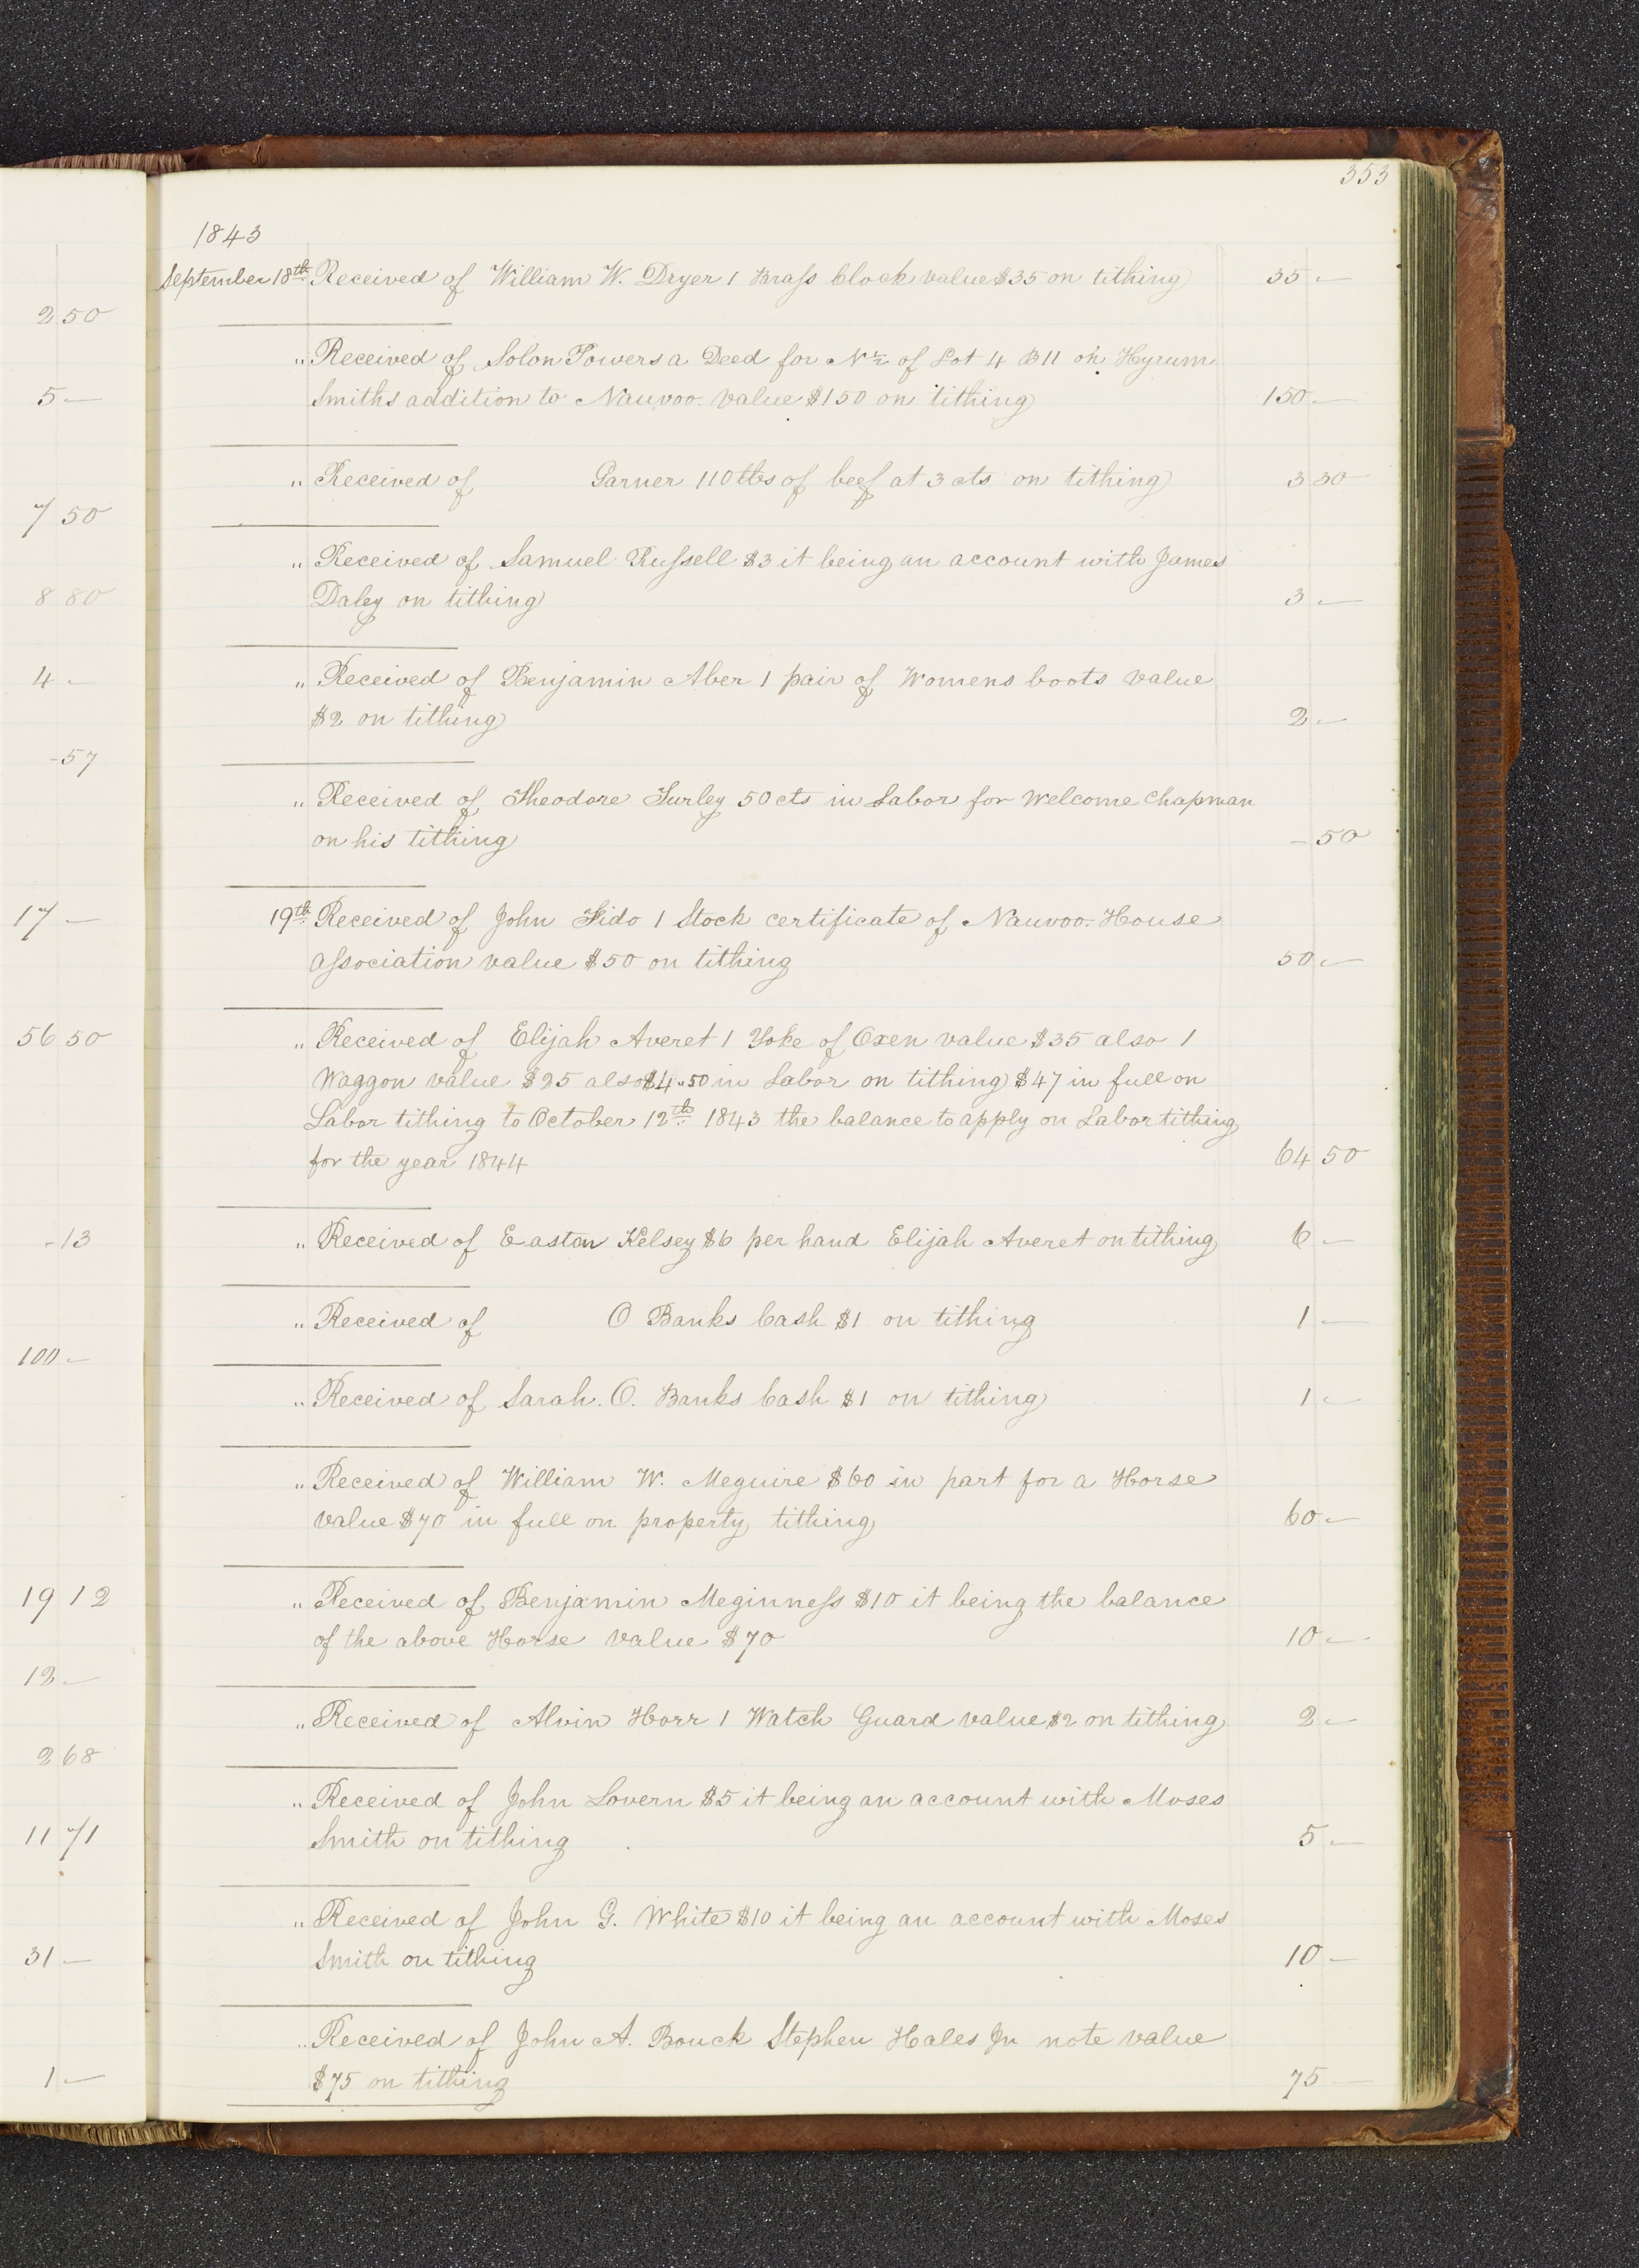 353
1843
September 18th Received of William W. Dryer 1 Brass Clock value $35 on tithing 35 —
250
" Received of Solon Powers a Deed for N ½ of Lot 4 B 11 on Hyrum
Smiths addition to Nauvoo value $150 on tithing 150 —
5 —
" Received of Garner 110 lbs of beef at 3 cts on tithing 3 30
7 50
" Received of Samuel Russell $3 it being an account with James
Daley on tithing 3 —
8 80
" Received of Benjamin Aber 1 pair of Womens boots value
4 —
$2 on tithing 2 —
- 57
" Received of Theodore Turley 50 cts in Labor for Welcome Chapman
on his tithing - 50
19th Received of John Fido 1 Stock certificate of Nauvoo House
17 —
association value $50 on tithing 50 —
" Received of Elijah Averet 1 Yoke of Oxen value $35 also 1
56 50
Waggon value $25 also $4"50 in Labor on tithing $47 in full on
Labor tithing to October 12th 1843 the balance to apply on Labor tithing
for the year 1844 64 50
" Received of Easton Kelsey $6 per hand Elijah Averet on tithing 6 —
- 13
" Received of O Banks Cash $1 on tithing 1 —
100 —
" Received of Sarah. O. Banks Cash $1 on tithing 1 —
" Received of William W. Meguire $60 in part for a Horse
value $70 in full on property tithing 60 —
" Received of Benjamin Meginness $10 it being the balance
19 12
of the above Horse value $70 10 —
12 —
" Received of Alvin Horr 1 Watch Guard value $2 on tithing 2 —
2 68
" Received of John Lovern $5 it being an account with Moses
Smith on tithing 5 —
11 71
" Received of John G. White $10 it being an account with Moses
Smith on tithing 10 —
31 —
" Received of John A. Bouck Stephen Hales Jn note value
$75 on tithing 75 —
1 —